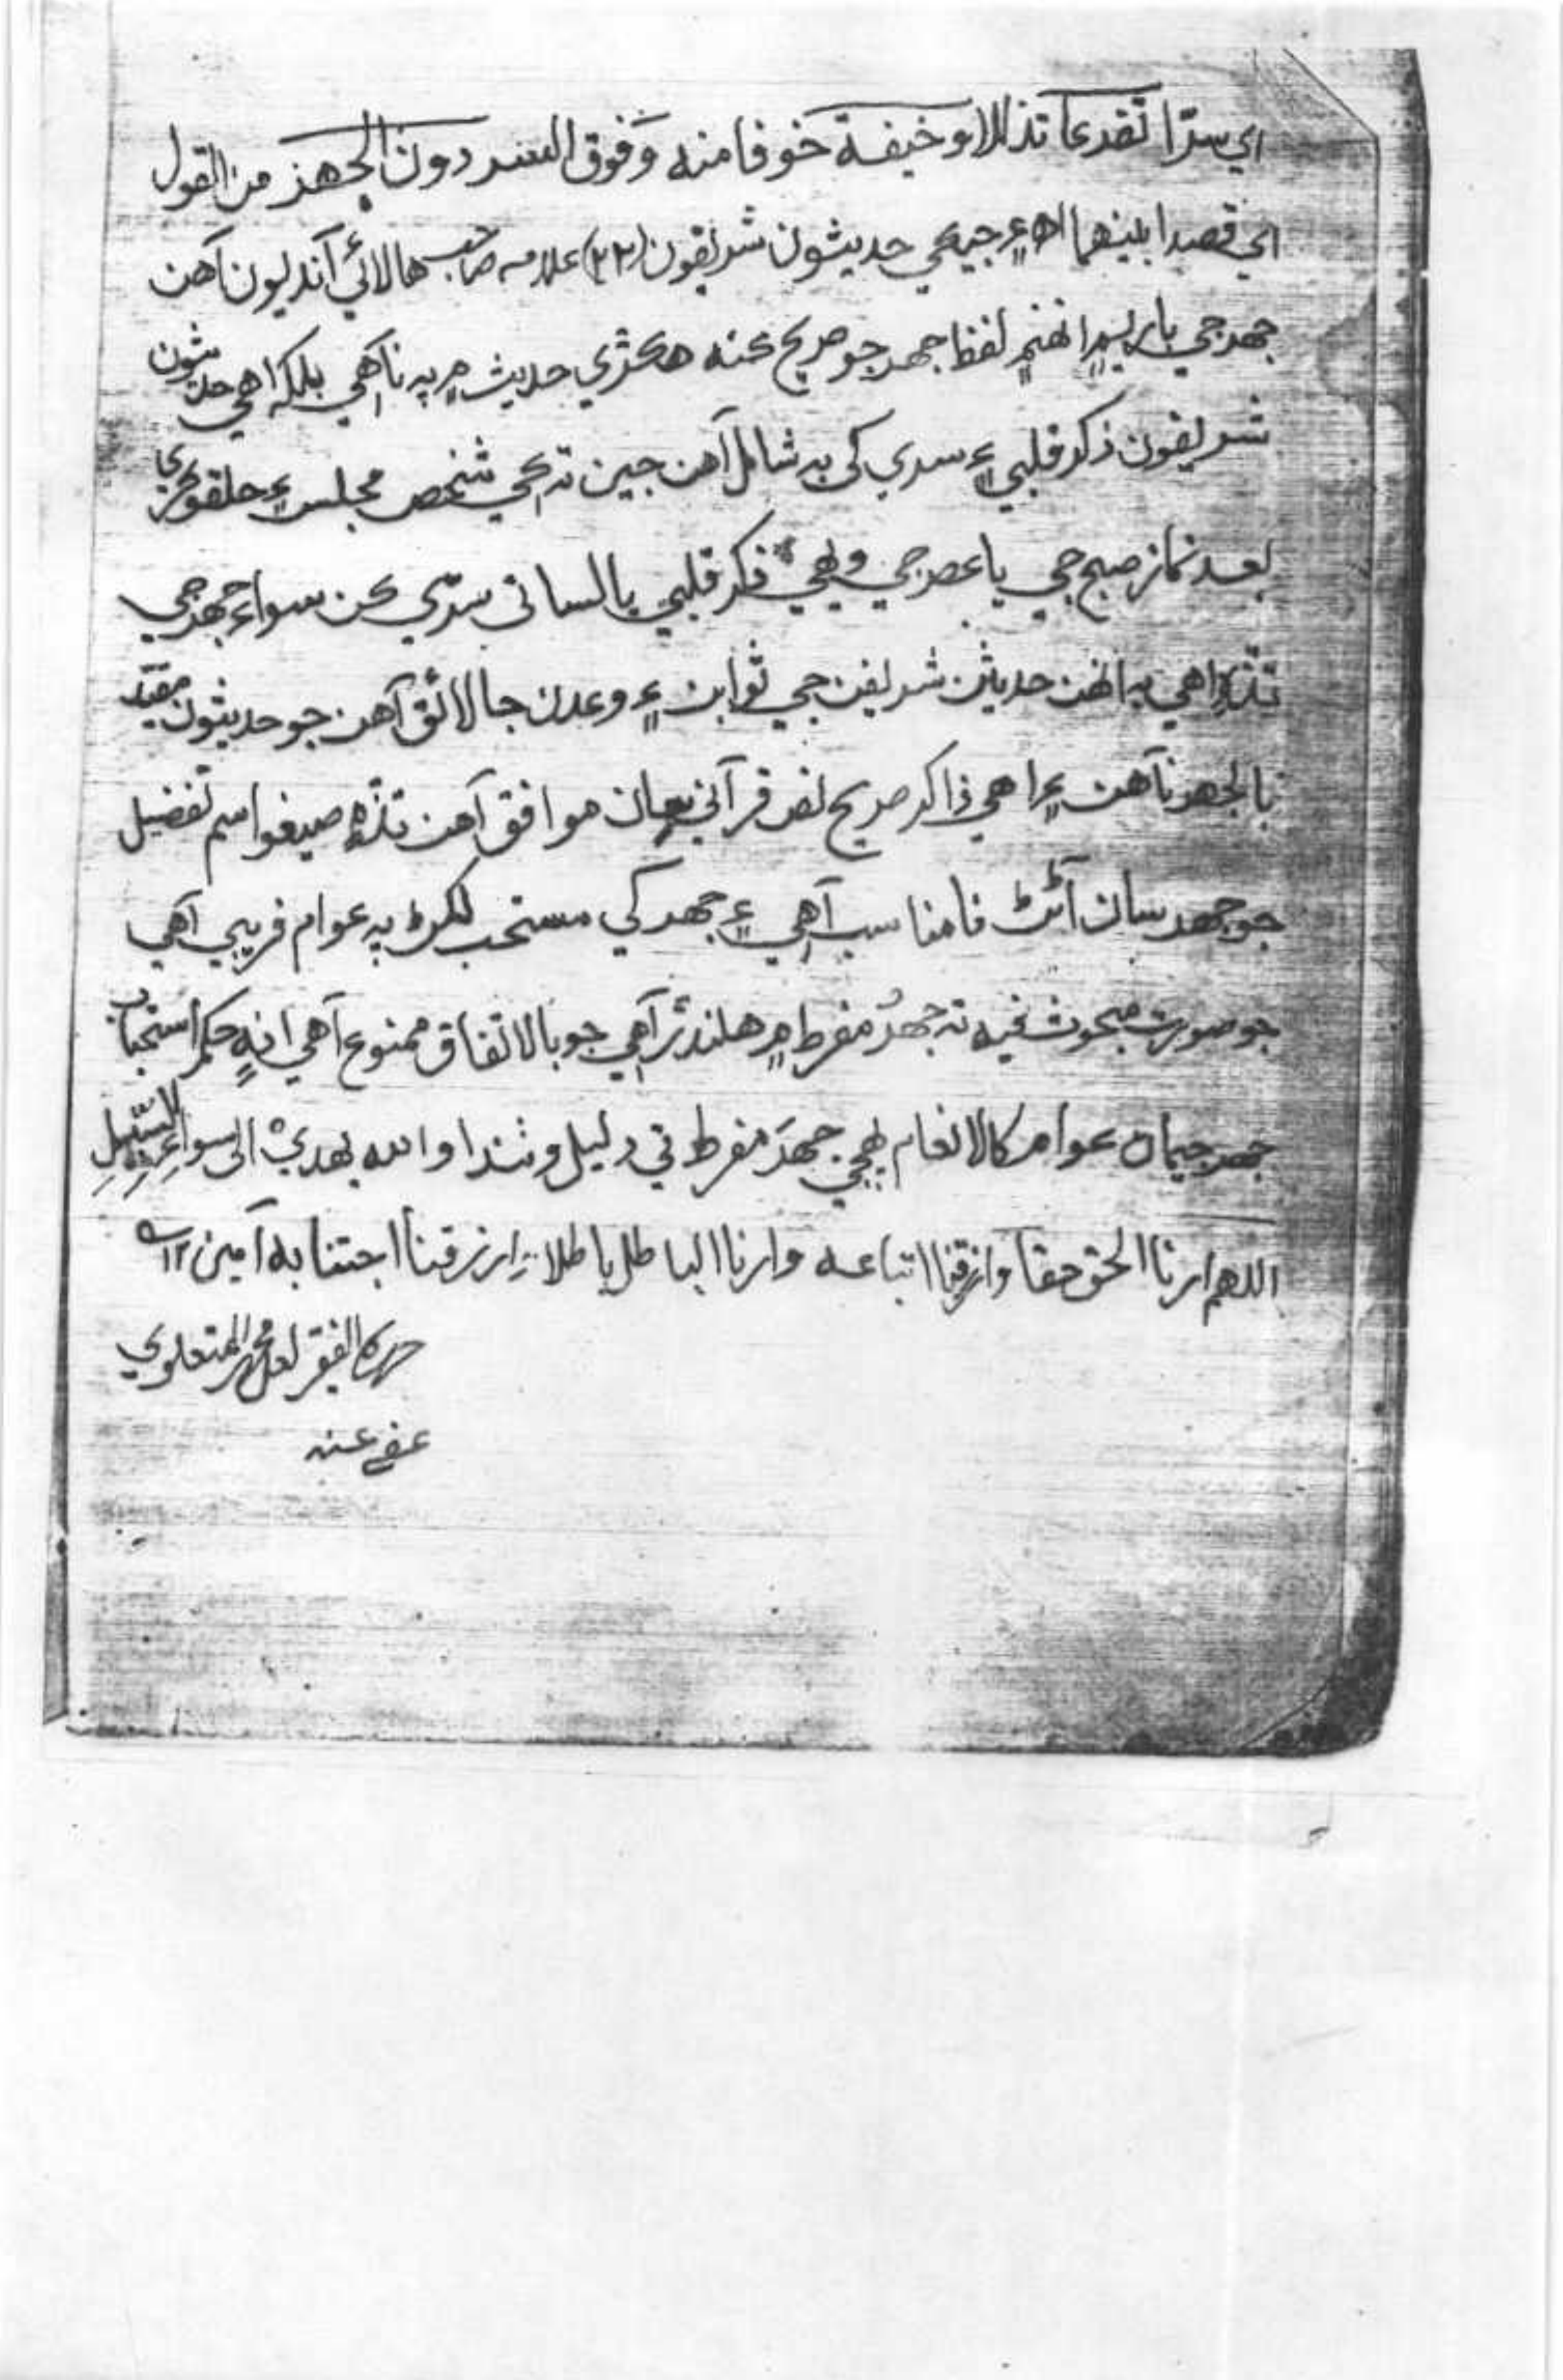 اي سرّا تضرعا تذللا و خيفة خوفا منه و فوق السر دون الجهر من القول
اي قصدا بينهما اھ ۽ جيڪي حديثون شريفون (٢٢) علامه صاحب هالائي آنديون آهن
جهر جي باري ۾ انهن ۾ لفظ جهر جو صريح ڪنه هڪڙي حديث ۾ به ناهي بلڪ اهي حديثون
شريفون ذڪر قلبي ۽ سري کي به شامل آهن جين ته ڪي شخص مجلس ۽ حلقو ڪري
بعد نماز صبح جي يا عصر جي ويهي ذڪر قلبي يا لساني سرّي ڪن سواءِ جهر جي
تڏه اهي به انهن حديثن شريفن جي ثوابن ۽ وعدن جا لائق آهن جو حديثون مقيد
بالجهر ناهن ۽ اهي ذاڪر صريح نص قرآني سان موافق آهن تڏه صيغو اسم تفضيل
جو جهر سان آڻڻ نامناسب آهي ۽ جهر کي مستحب لکڻ به عوام فريبي آهي
جو صورت مبحوث فيه ته جهر مفرط ۾ هلندڙ آهي جو بالاتفاق ممنوع آهي انه حڪم استحباب
جهر جيمان عوام ڪالانعام پهچي جهر مفرط تي دليل وٺندا والله يهدي الى سواء السبيل
اللهم ارنا الحق حقا وارزقنا اتباعه وارنا الباطل باطلا وارزقنا اجتنابه آمين ١٢
حرره الفقير لعل محمد المتعلوي
عفي عنه